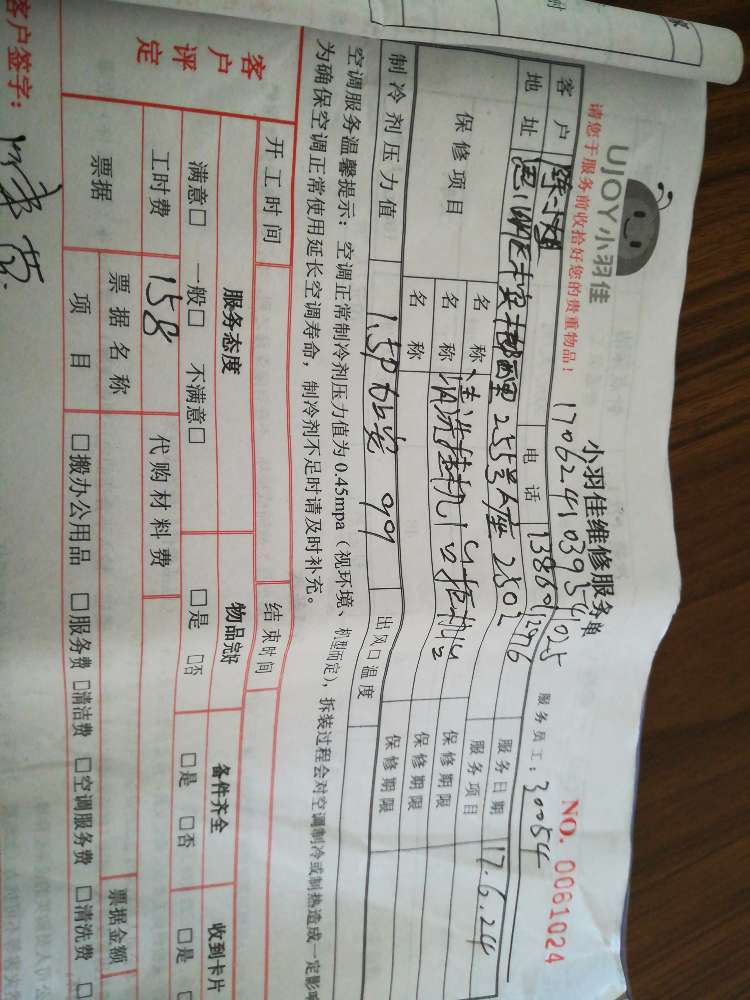 UJOY小羽佳
小羽佳维修服务单
NO. 0061024
请您于服务前收拾好您的贵重物品！
服务员工：30054
客户
电话
服务日期 17.6.24
地址
服务项目
保修项目
名称
保修期限
名称 清洗挂机1台
保修期限
名称
保修期限
制冷剂压力值 1.5P
出风口温度
空调服务温馨提示：空调正常制冷剂压力值为0.45mpa（视环境、机型而定），拆装过程会对空调制冷或制热造成一定影
为确保空调正常使用延长空调寿命，制冷剂不足时请及时补充。
开工时间
结束时间
客户评定
服务态度
物品完好
备件齐全
收到卡片
满意□ 一般□ 不满意□
□是 □否
□是 □否
□是
工时费 158
代购材料费
票据
票据名称
票据金额
项目
□搬办公用品 □服务费 □清洁费 □空调服务费 □清洗费 □
客户签字：